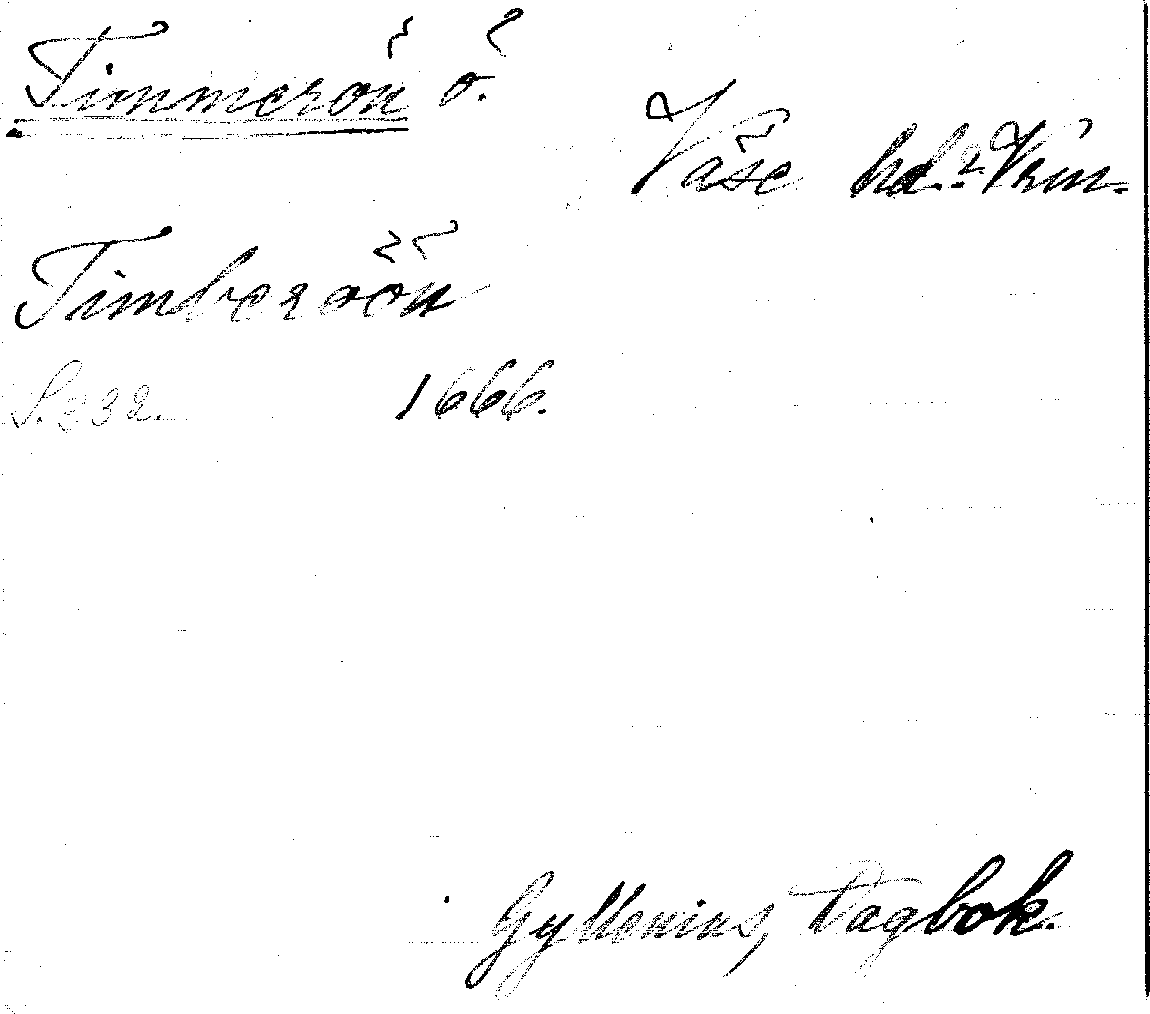 Timmerön ö.
Väse hd. Vrm.
Timberöön
S. 332. 1666.
Gyllenius, Dagbok.